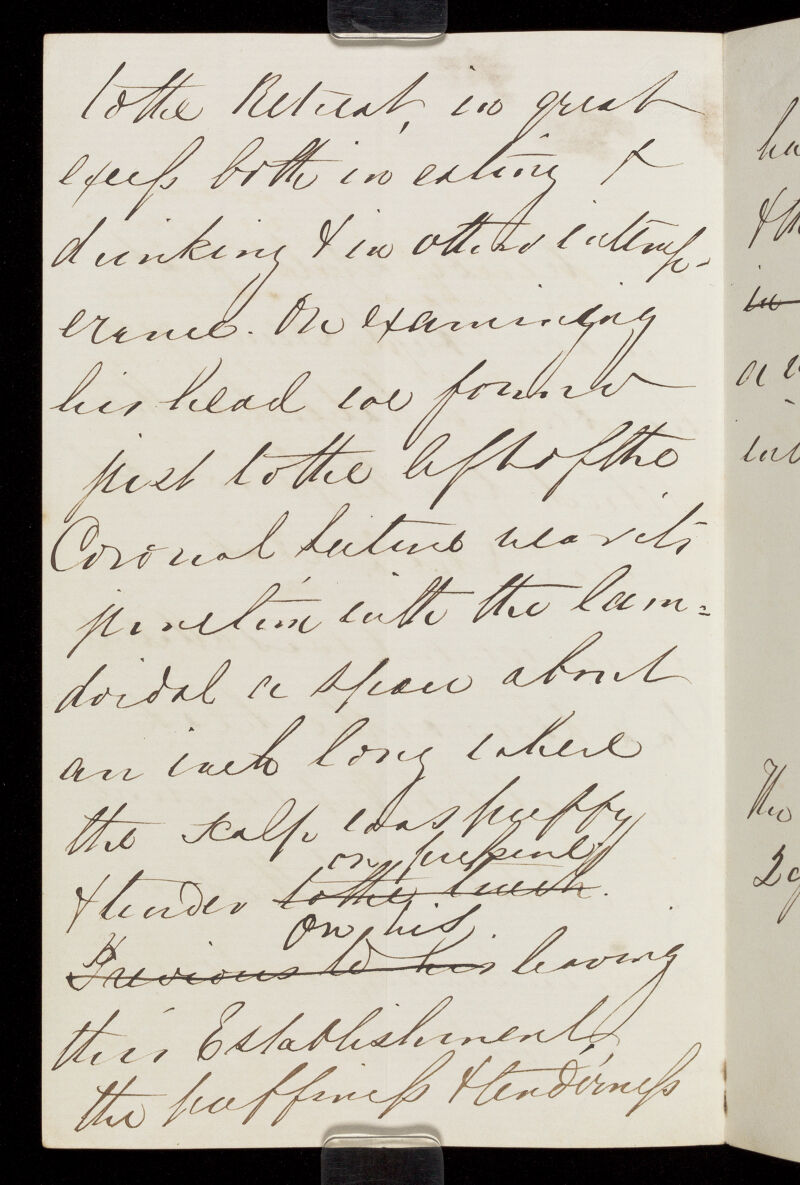 to the Retreat, in great
excess both in eating &
drinking & in other intemp-
erance. On examining
his head we found
just to the left of the
Coronal Suture near its
junction with the lam=
doidal a space about
an inch long where
the scalp was puffy
on pressure
& tender to the touch.
On his
Previous to his leaving
this Establishment,
the puffiness & tenderness
ha
& th
in
a
int
The
2